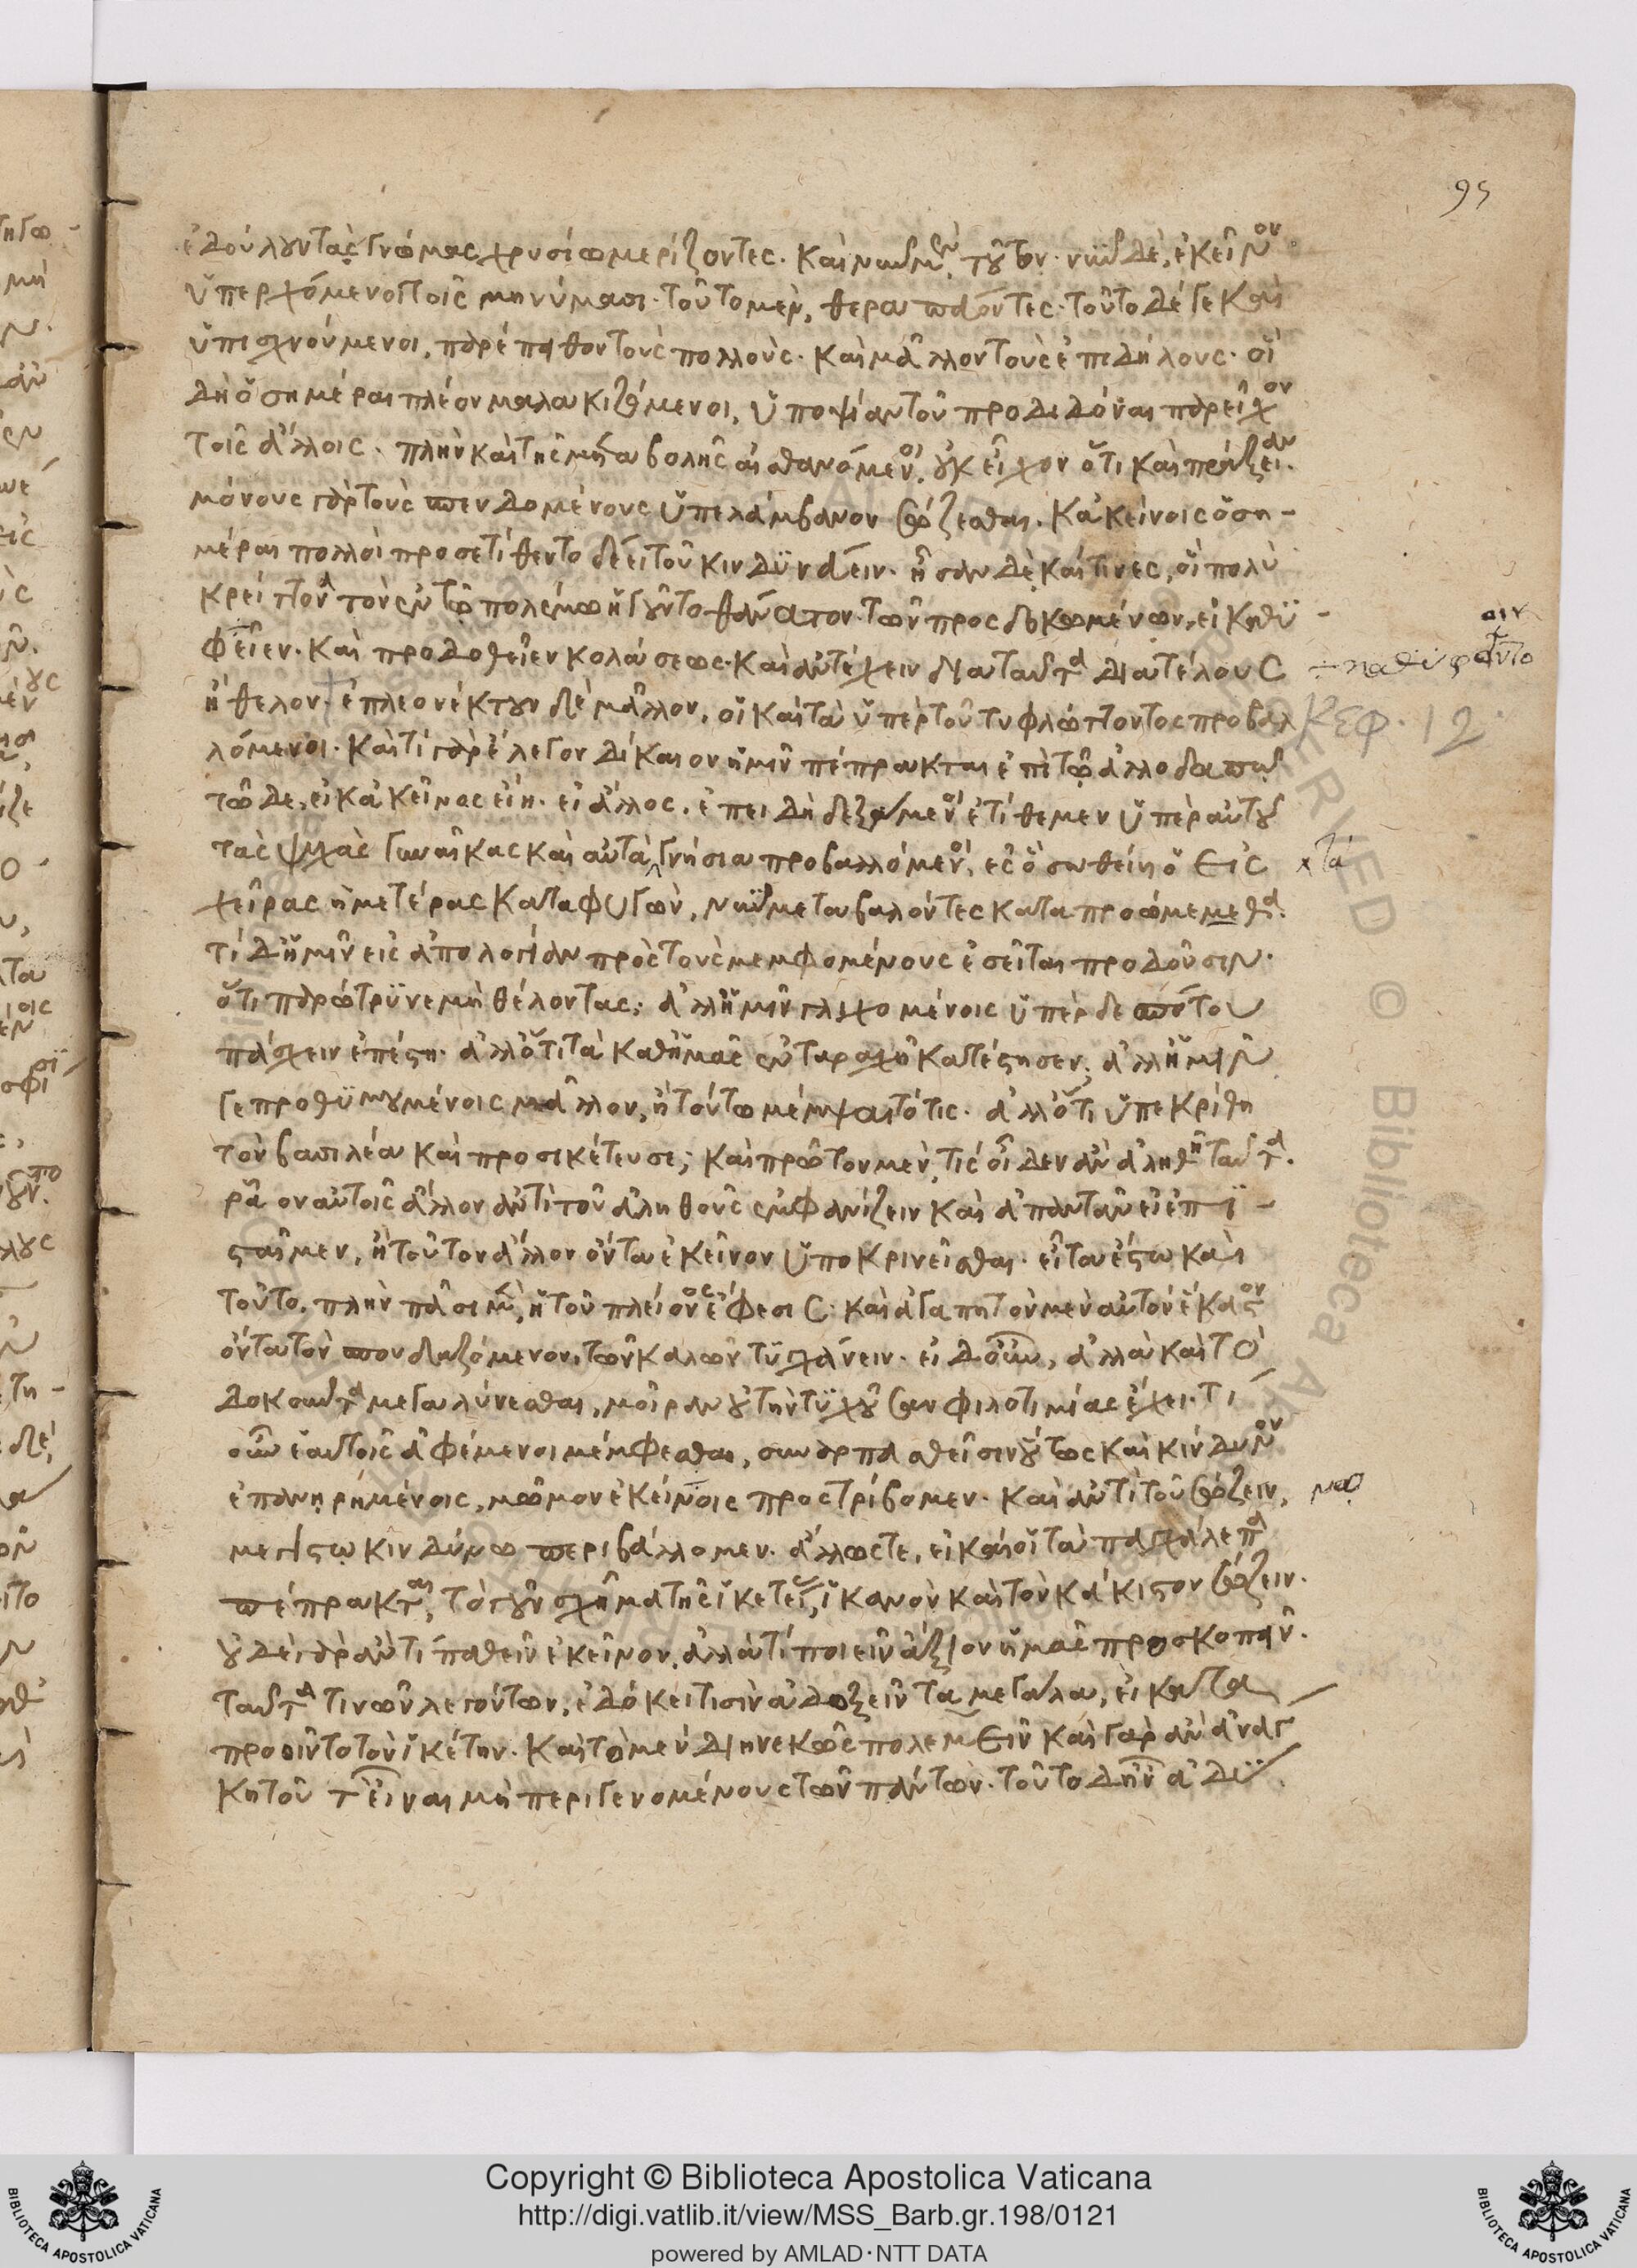 95
ἐδούλουν τὰς γνώμας χρυσίω μερίζοντες. καὶ νῦν μὲν, τοῦτον. νῦν δὲ, ἐκεῖνον
ὑπερχόμενοι τοῖς μηνύμασι. τοῦτο μὲν, θεραπεύοντες. τοῦτο δέ γε καὶ
ὑπισχνούμενοι, παρέπειθον τοὺς πολλούς. καὶ μᾶλλον τοὺς ἐπιδήλους. οἳ
δὴ ὁσημέραι πλέον μαλακιζόμενοι, ὑποψίαν τοῦ προδιδόναι παρεῖχον
τοῖς ἄλλοις. πλὴν καὶ τῆς μεταβολῆς αἰσθανόμενοι, οὐκ εἶχον ὅτι καὶ πράξειαν.
μόνους γὰρ τοὺς σπενδομένους ὑπελάμβανον σώζεσθαι. κἀκείνοις ὁση-
μέραι πολλοὶ προσετίθεντο δέει τοῦ κινδυνεύειν. ἦσαν δὲ καί τινες, οἳ πολὺ
κρείττονα τὸν ἐν τῶ πολέμω ἡγοῦντο θάνατον τῶν προσδοκωμένων, εἰ καθυ-
φεῖεν. καὶ προδοθεῖεν κολάσεως. καὶ ἀντέχειν διὰ ταῦτα διὰ τέλους
ἤθελον. ἐπλεονέκτουν δὲ μᾶλλον, οἳ καὶ τὰ ὑπὲρ τοῦ τυφλώττοντος προβαλ
λόμενοι. καὶ τί γὰρ ἔλεγον δίκαιον ἡμῖν πέπρακται ἐπὶ τῶ ἀλλοδαπῶ
τῶδε, εἰ κἀκεῖνος εἴη. εἰ ἄλλος. ἐπειδὴ δεξάμενοι ἐτίθεμεν ὑπὲρ αὐτοῦ
τὰς ψυχὰς γυναῖκας καὶ αὐτὰ γνήσια προβαλλόμενοι, ἐς ὃ σωθείη ὁ εἰς
χεῖρας ἡμετέρας καταφυγὼν, νῦν μεταβαλόντες καταπροώμεμεθα.
τί δ' ἡμῖν εἰς ἀπολογίαν πρὸς τοὺς μεμφομένους ἐσεῖται προδοῦσιν.
ὅτι παρώτρυνε μὴ θέλοντας; ἀλλ' ἡμῖν γλιχομένοις ὑπὲρ δεσπότου
πάσχειν ἐπέστη. ἀλλ' ὅτι τὰ καθ' ἡμᾶς ἐν ταραχῆ κατέστησεν; ἀλλ' ἡμῖν
γε προθυμουμένοις μᾶλλον, ἢ τούτω μέμψαιτό τις. ἀλλ' ὅτι ὑπεκρίθη
τὸν βασιλέα καὶ προσικέτευσε; καὶ πρῶτον μὲν, τίς οἶδεν ἂν ἀληθῆ ταῦτα.
ῥᾶον αὐτοῖς ἄλλον ἀντὶ τοῦ ἀληθοῦς ἐμφανίζειν καὶ ἀπαντᾶν εἰ ἐπι-
σταῖμεν, ἢ τοῦτον ἄλλον ὄντα ἐκεῖνον ὑποκρινεῖσθαι. εἶτα ἔστω καὶ
τοῦτο. πλὴν πᾶσι μὲν, ἡ τοῦ πλείονος ἔφεσις. καὶ ἀγαπητὸν μὲν αὐτὸν ἕκαστον
ὄντα τὸν σπουδαζόμενον, τῶν καλῶν τυγχάνειν. εἰ δ' οὖν, ἀλλὰ καὶ τὸ
δοκοῦντα μεγαλύνεσθαι, μοῖραν οὐ τὴν τυχοῦσαν φιλοτιμίας ἔχει. τί
οὖν ἑαυτοῖς ἀφέμενοι μέμφεσθαι, συναρπασθεῖσιν οὕτως καὶ κίνδυνον
ἐπανηρημένοις, μῶμον ἐκείνοις προστρίβομεν. καὶ ἀντὶ τοῦ σώζειν,
μεγίστω κινδύνω περιβάλλομεν. ἄλλως τε, εἰ καί οἱ τὰ πάγχαλεπα
πέπρακται, τὸ γοῦν σχῆμα τῆς ἱκετείας, ἱκανὸν καὶ τὸν κάκιστον σώζειν.
οὐδὲ γὰρ ἄν τι παθεῖν ἐκεῖνον, ἀλλὰ τί ποιεῖν ἄξιον ἡμᾶς προσκοπεῖν.
ταῦτα τινῶν λεγόντων, ἐδόκει τισὶν ἀδοξεῖν τὰ μεγάλα, εἰ κατα
προοῖντο τὸν ἱκέτην. καὶ τὸ μὲν διηνεκῶς πολεμεῖν καὶ γὰρ ἂν ἀναγ
κη τοῦτ' εἶναι μὴ περιγενομένους τῶν πάντων. τοῦτο δ' ἦν ἀδύ
καθυφοῖντο
Κεφ. 12
× τὰ
Copyright © Biblioteca Apostolica Vaticana
http://digi.vatlib.it/view/MSS_Barb.gr.198/0121
powered by AMLAD·NTT DATA
BIBLIOTECA APOSTOLICA VATICANA
BIBLIOTECA APOSTOLICA VATICANA